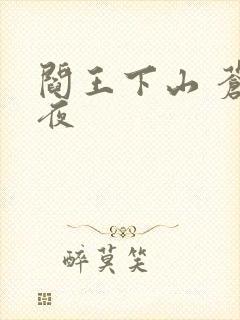 閻王下山 蒼
夜
醉莫笑